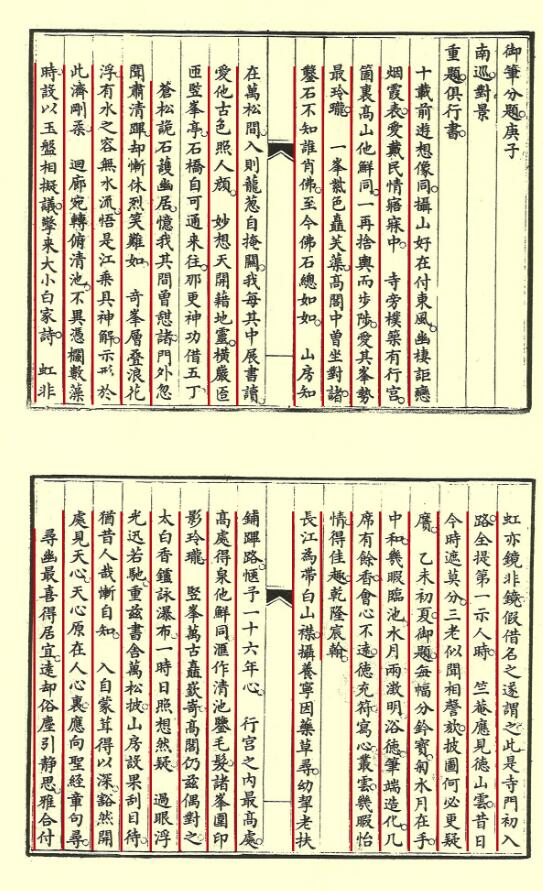 御筆分題。庚子
南巡。對景
重題俱行書。
十載前遊想像同。攝山好在付東風。幽棲詎戀
烟霞表。愛戴民情寤寐中　寺旁樸築有行宮。
箇裏高山他鮮同。一再捨輿而步陟。愛其峯勢
最玲瓏　一峯黛色矗芙蕖。高閣中曾坐對諸。
鑿石不知誰肖佛。至今佛石總如如。　山房知
在萬松間。入則蘢葱自掩關。我每其中展書讀。
愛他古色照人顔。　妙想天開藉地靈。橫巖匼
匝竪峯亭。石橋自可通來往。那更神功借五丁
蒼松詭石護幽居。憶我其間曾憇諸。門外忽
聞肅清蹕。却慚休烈笑難如。　奇峯層叠浪花
浮。有水之容無水流。悟是江乘具神解。示形於
此濟剛柔　迴廊宛轉俯清池。不異憑欄數藻
時。設以玉盤相擬議。擎來大小白家詩　虹非
虹亦鏡非鏡。假借名之遂謂之。此是寺門初入
路。全提第一示人時　竺菴應見德山雲。昔日
今時遮莫分。三老似聞相警欬。披圖何必更疑
贋。　乙未初夏。御題。每幅分鈐寶。匊水月在手。
中和。幾暇臨池。水月兩澂明。浴德。筆端造化。几
席有餘香。會心不遠。德充符。寫心。叢雲。幾暇怡
情。得佳趣。乾隆宸翰。
長江為帶白山襟。攝養寧因藥草尋。幼挈老扶
鋪蹕路。愜予一十六年心　行宮之內最高處。
高處得泉他鮮同。滙作清池鑒毛髮。諸峯圍印
影玲瓏　竪峯萬古矗嶔嵜。高閣仍茲偶對之
太白香鑪詠瀑布。一時日照想然疑　過眼浮
光迅若馳。重茲書舍萬松披。山房設果刮目待。
猶昔人哉慚自知　入自蒙茸得以深。豁然開
處見天心。天心原在人心裏。應向聖經章句尋。
尋幽最喜得居宜。遠却俗塵引靜思。雅合付